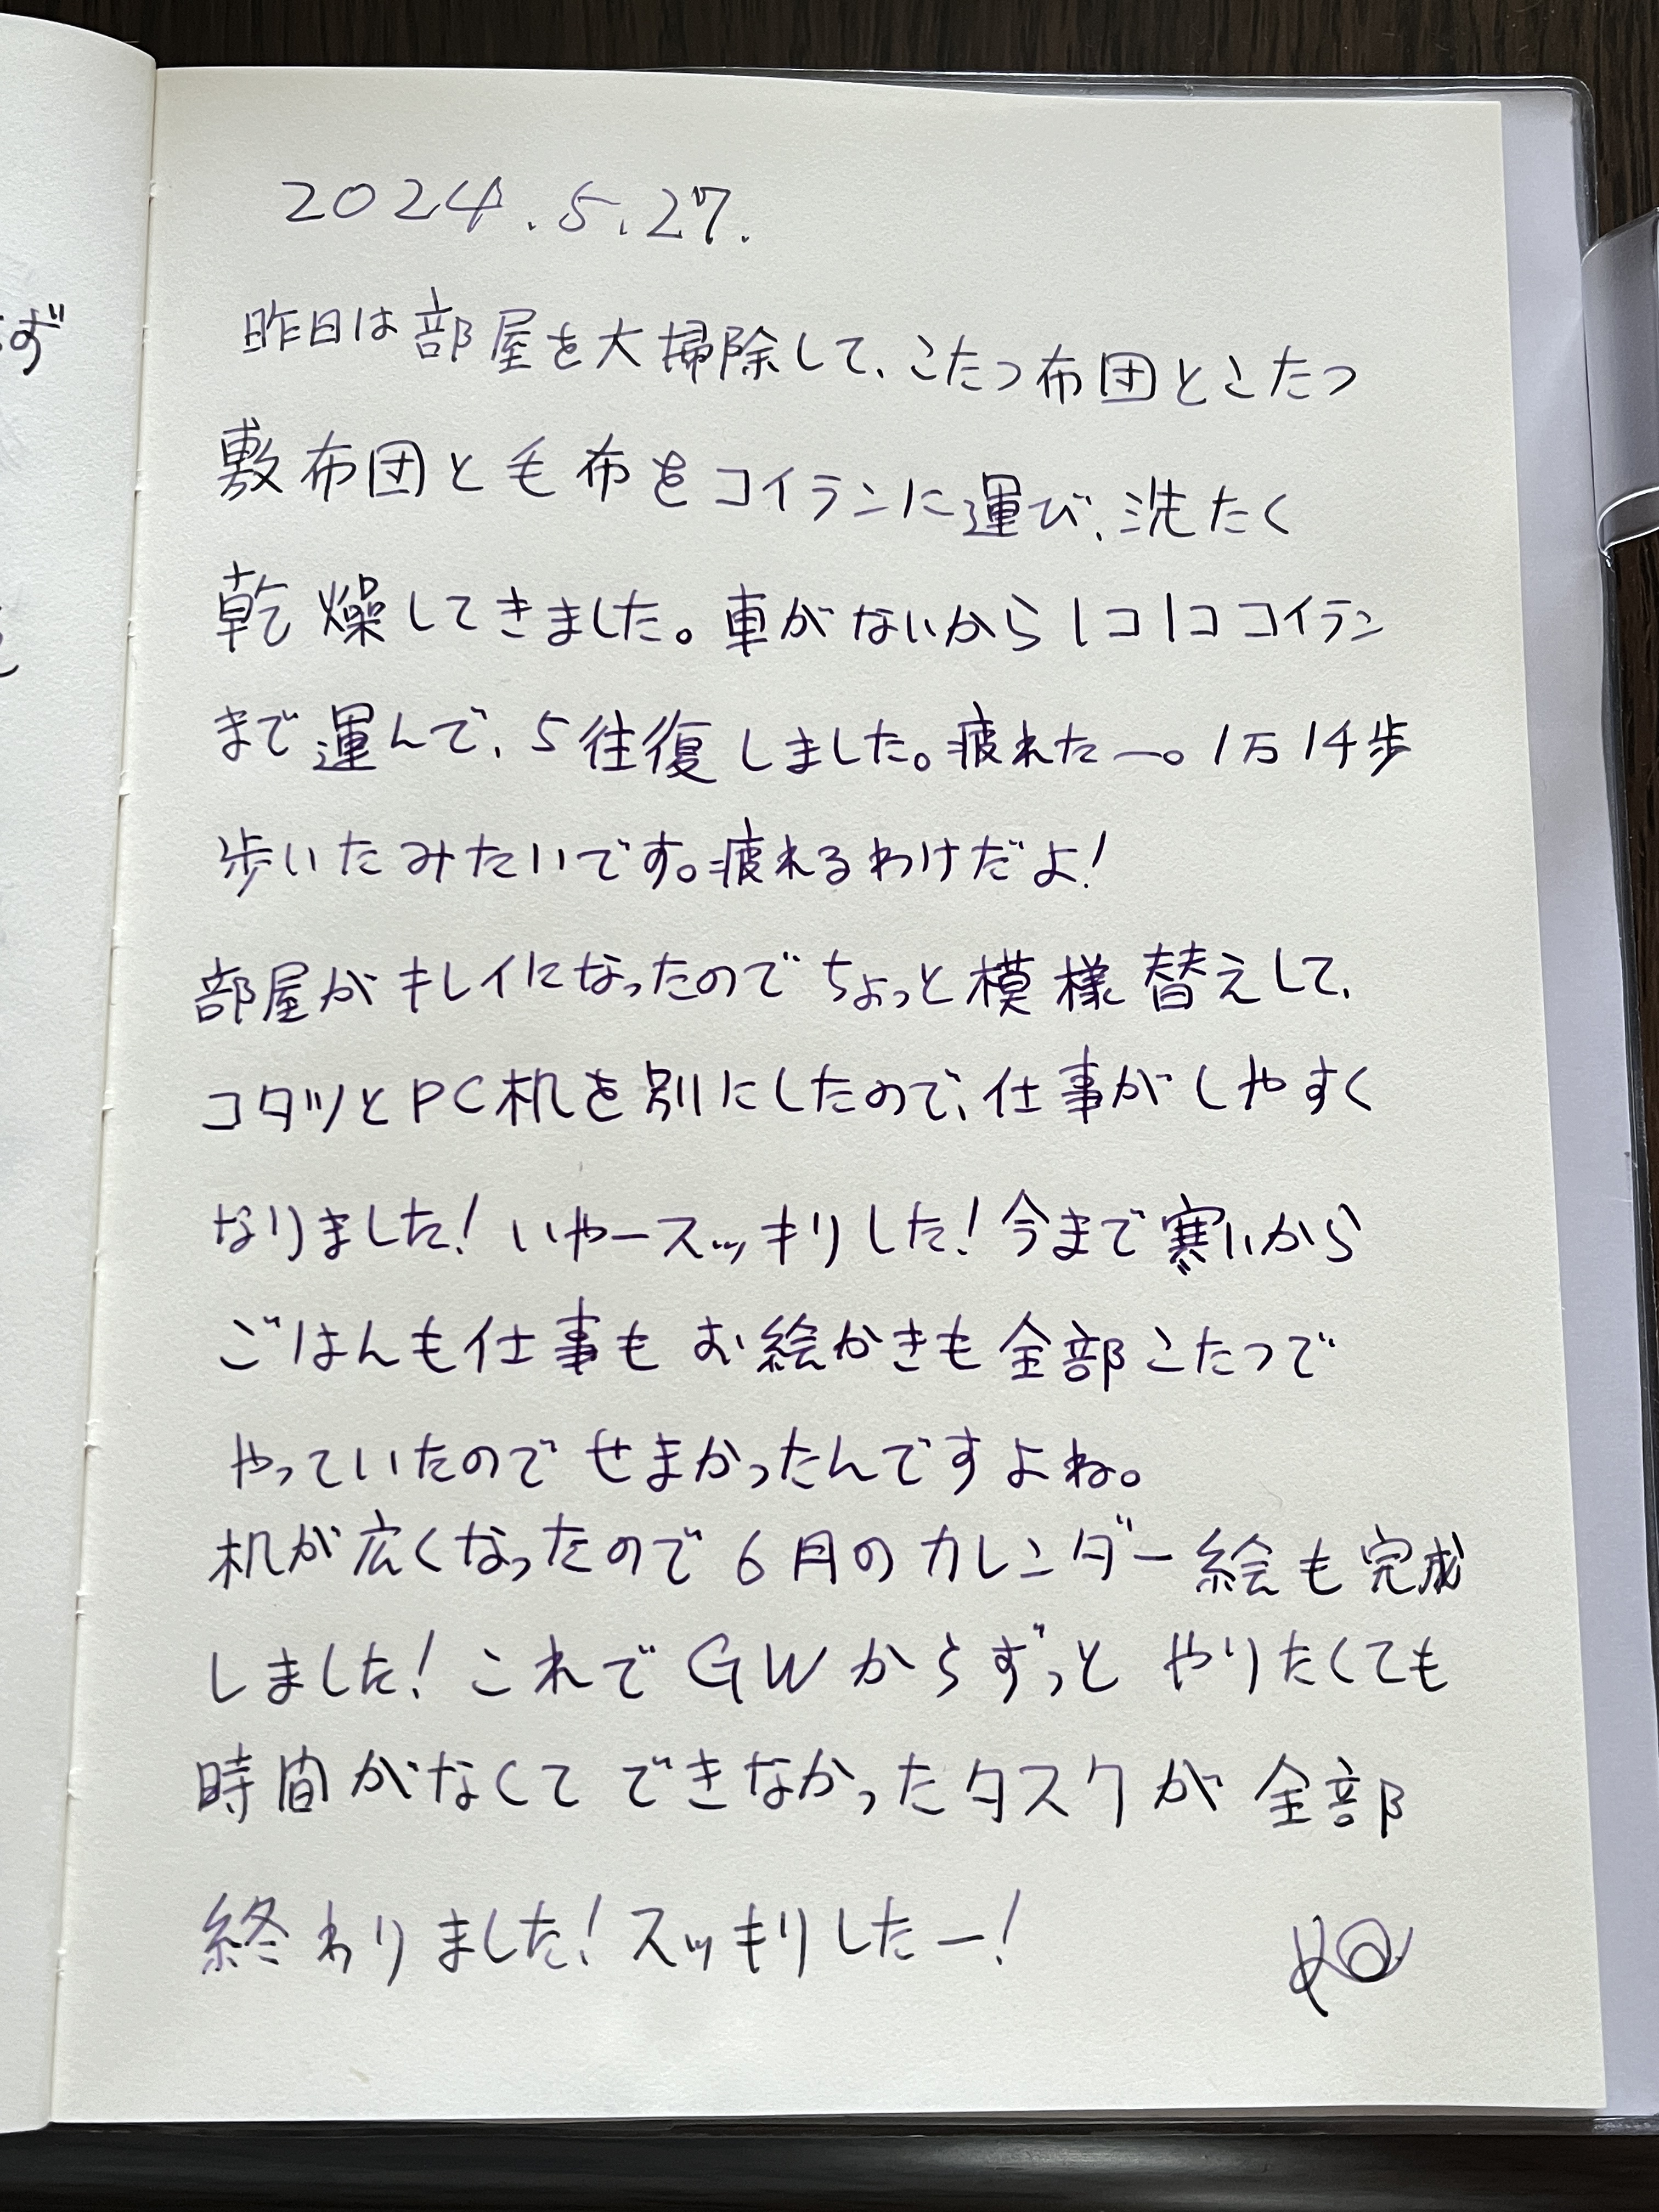 2024.5.27.
昨日は部屋を大掃除して、こたつ布団とこたつ
敷布団と毛布をコイランに運び、洗たく
乾燥してきました。車がないから1コ1ココイラン
まで運んで、5往復しました。疲れたー。1万14歩
歩いたみたいです。疲れるわけだよ!
部屋がキレイになったのでちょっと模様替えして、
コタツとPC机を別にしたので、仕事がしやすく
なりました!いやースッキリした!今まで寒いから
ごはんも仕事もお絵かきも全部こたつで
やっていたのでせまかったんですよね。
机が広くなったので6月のカレンダー絵も完成
しました!これでGWからずっとやりたくても
時間がなくてできなかったタスクが全部
終わりました!スッキリしたー!